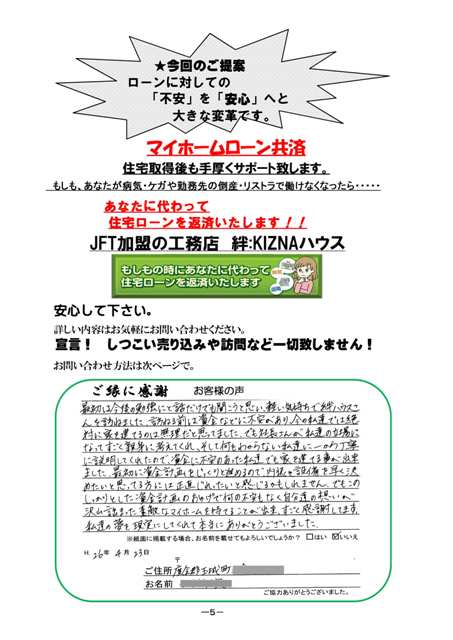 ★今回のご提案
ローンに対しての
「不安」を「安心」へと
大きな変革です。
マイホームローン共済
住宅取得後も手厚くサポート致します。
もしも、あなたが病気・ケガや勤務先の倒産・リストラで働けなくなったら・・・・・
あなたに代わって
住宅ローンを返済いたします！！
JFT加盟の工務店 絆:KIZNAハウス
もしもの時にあなたに代わって
住宅ローンを返済いたします
安心して下さい。
詳しい内容はお気軽にお問い合わせください。
宣言！ しつこい売り込みや訪問など一切致しません！
お問い合わせ方法は次ページで。
ご縁に感謝 お客様の声
最初は今後の勉強にと話だけでも聞こうと思い、軽い気持ちで絆ハウスさ
んを訪ねました。訪ねる前は資金などに不安があり、今の私達では絶
対に家を建てるのは無理だと思ってました。でも社長さんが私達の立場に
なってすごく親身に考えてくれ、そして何もわからない私達に一から丁寧
に説明してくれたので、資金に不安のあった私達でも家を建てる事が出来
ました。最初に資金計画をじっくりと進めるので内装や設備を早く決
めたいと思ってる方には正直じれったいと感じるかもしれません。でもこの
しっかりとした資金計画のおかげで何の不安もなく自分達の想いが
沢山詰まった素敵なマイホームを持てることが出来、すごく感謝してます。
私達の夢を現実にしてくれて本当にありがとうございました。
※紙面に掲載する場合、お名前を載せてもよろしいでしょうか？ □はい ☑いいえ
H. 26年 4月 23日
〒
ご住所 度会郡玉城町
お名前
ご協力ありがとうございました。
―5―